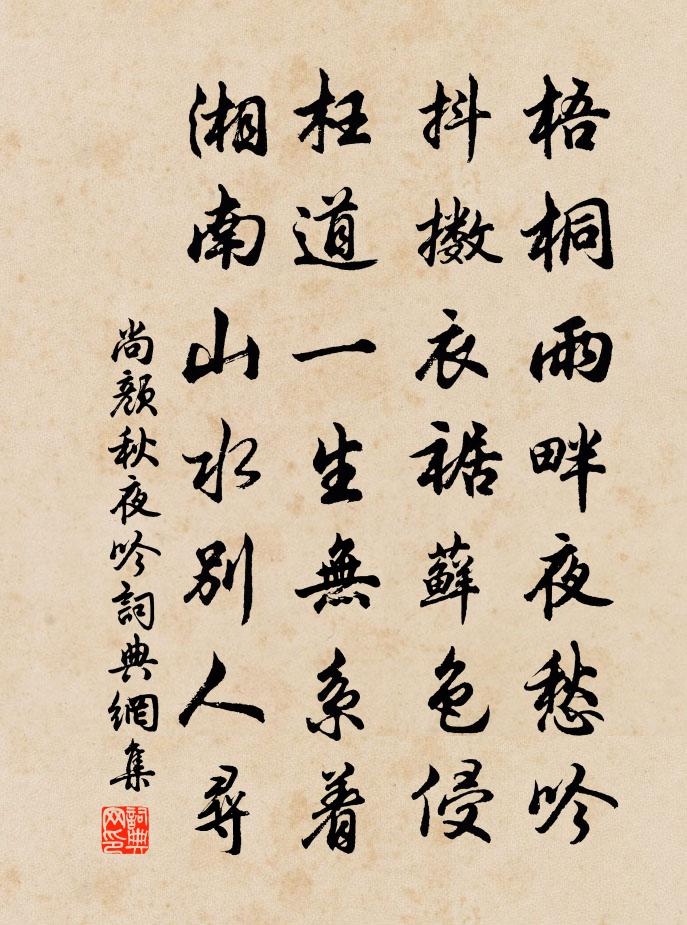 梧桐雨畔夜愁吟
抖擻衣裾蘚色侵
枉道一生無系着
湘南山水別人尋
尚顏秋夜吟詞典網集
詞典网印